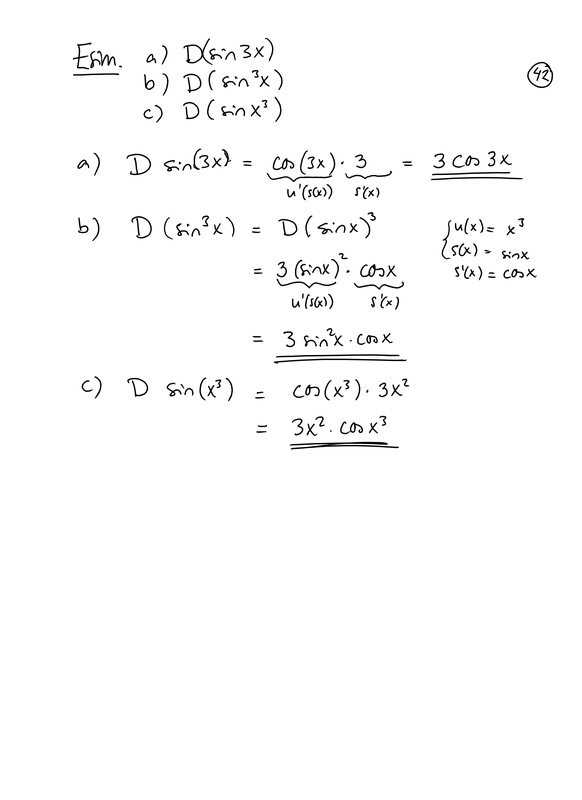 Esim. a) D(sin3x)
b) D(sin³x)
c) D(sinx³)
42
a) D sin(3x) = cos(3x) · 3 = 3 cos 3x
u'(s(x)) s'(x)
b) D(sin³x) = D(sinx)³
u(x) = x³
s(x) = sinx
s'(x) = cosx
= 3(sinx)² · cosx
u'(s(x)) s'(x)
= 3 sin²x · cosx
c) D sin(x³) = cos(x³) · 3x²
= 3x² · cosx³